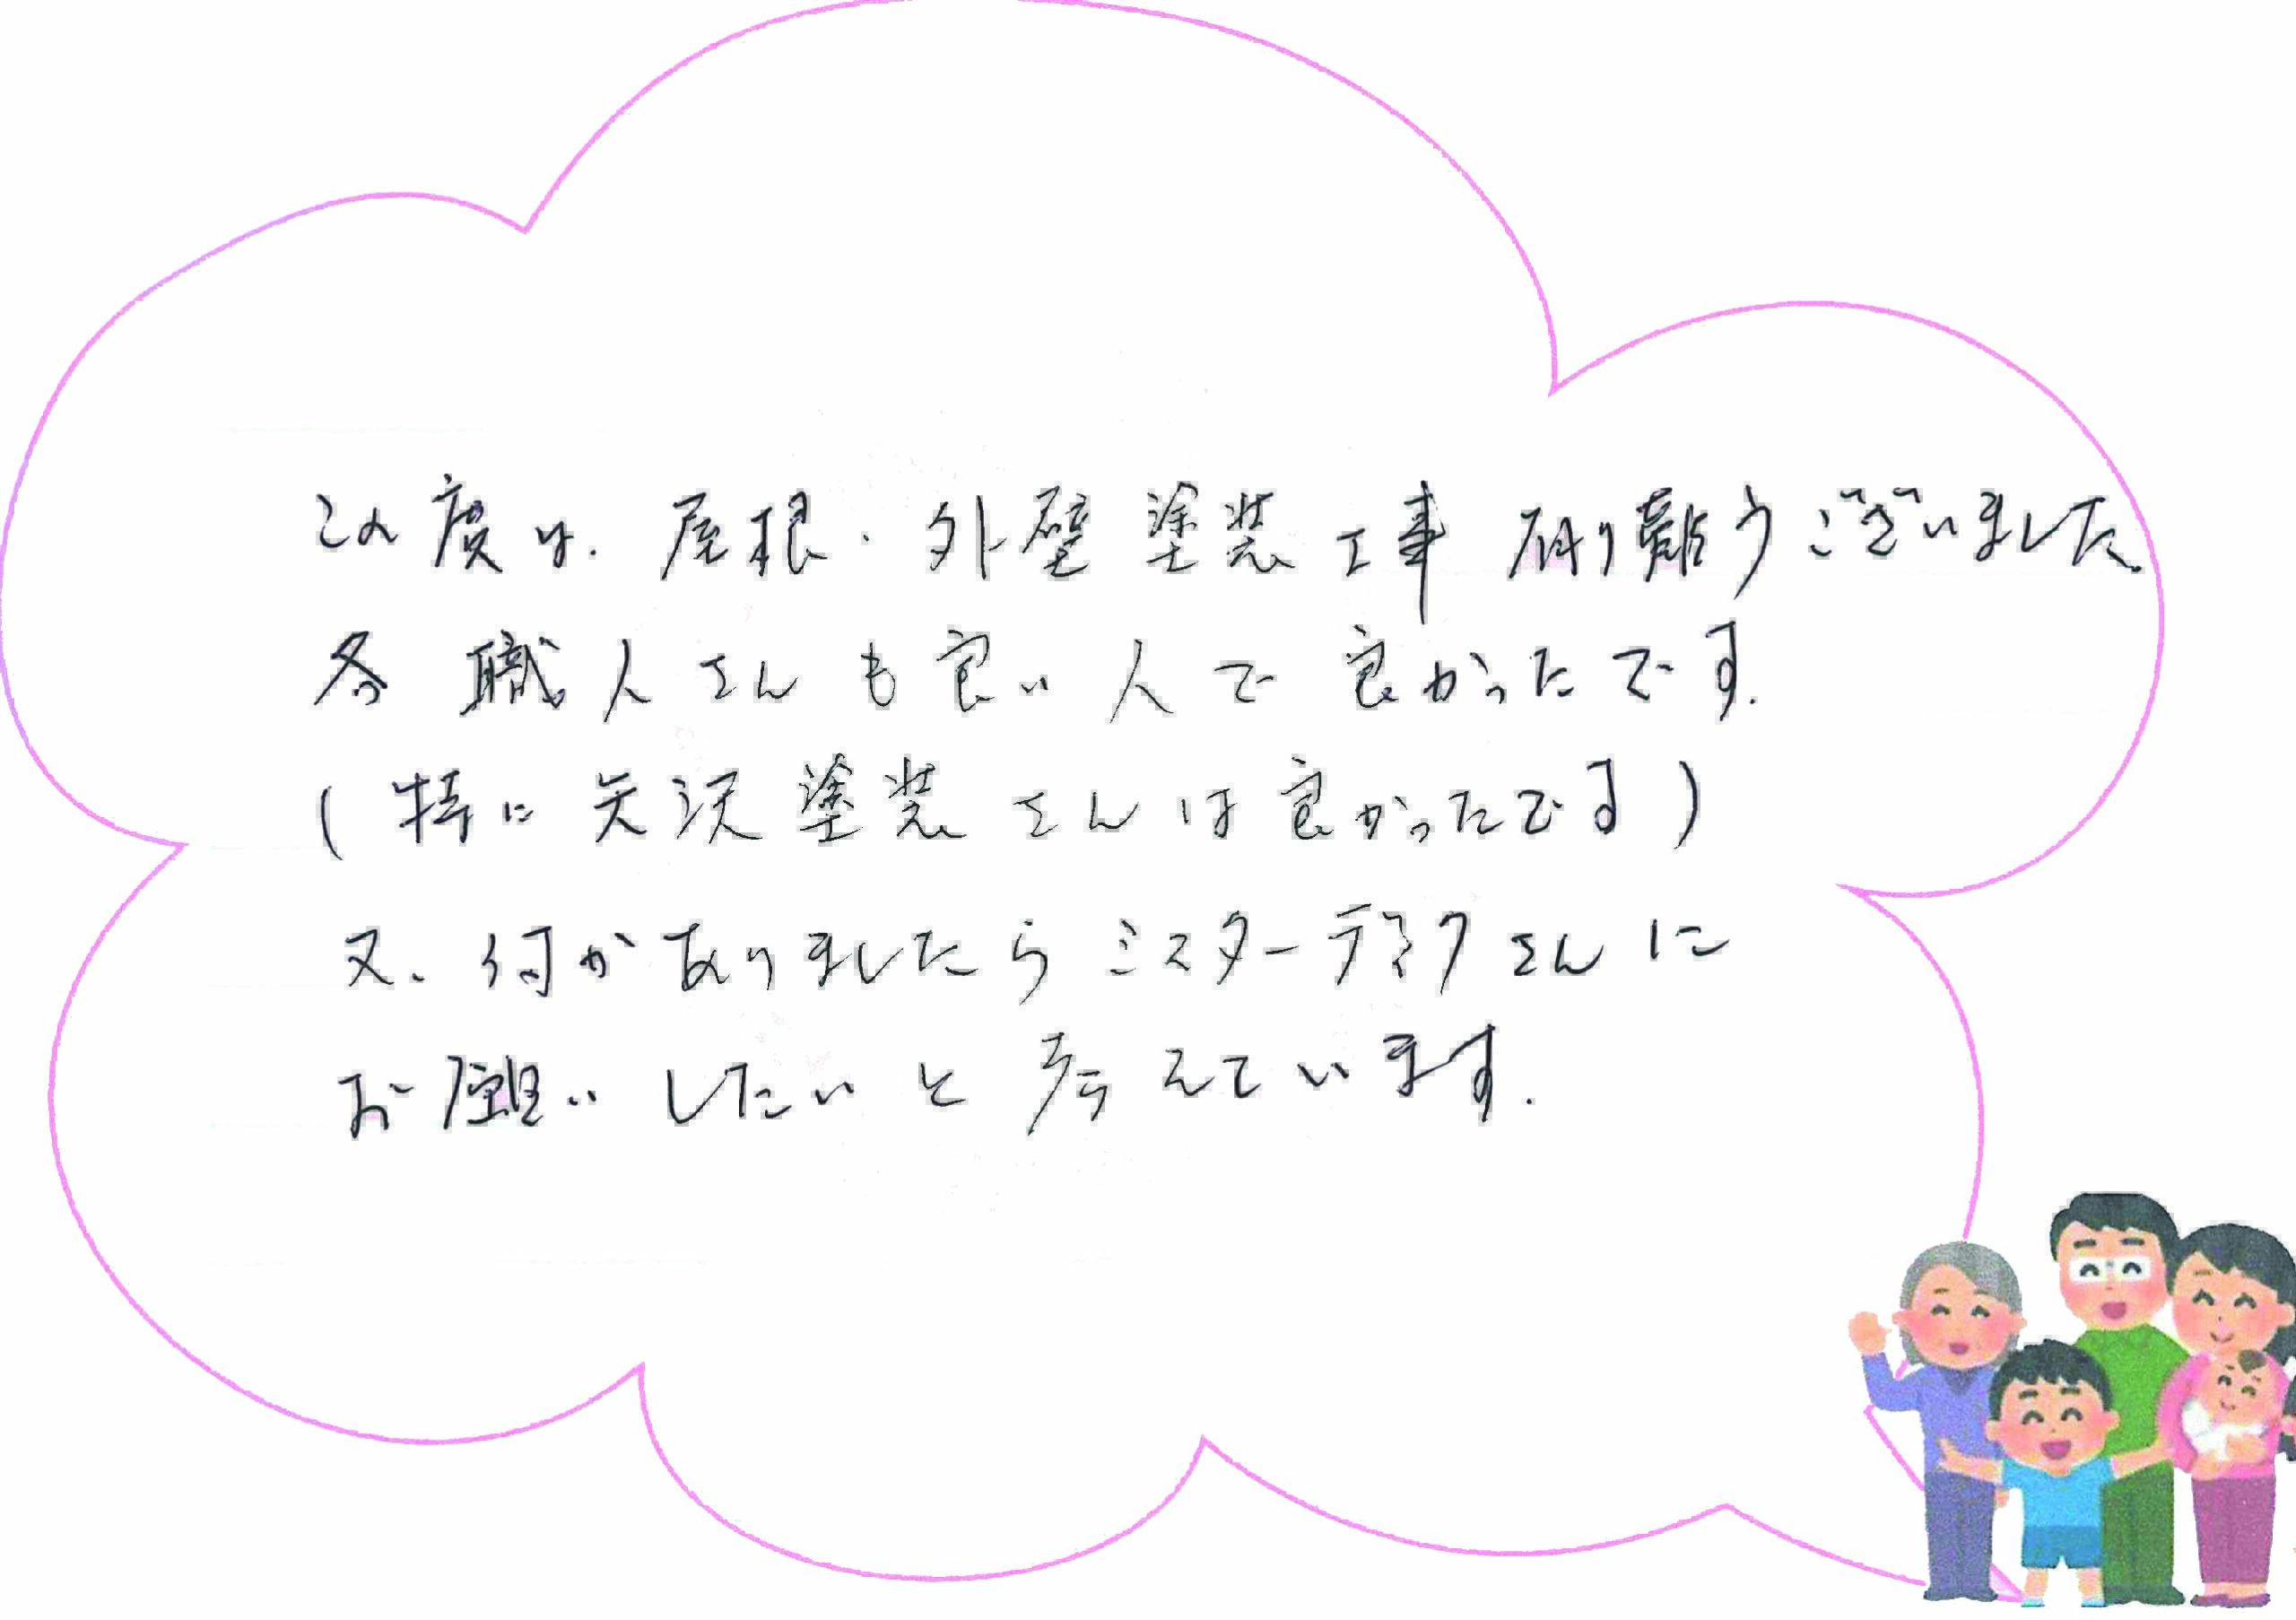 この度は、屋根・外壁塗装工事有り難うございました。
各職人さんも良い人で良かったです。
(特に矢沢塗装さんは良かったです)
又、何かありましたらミスターデイクさんに
お願いしたいと考えています。